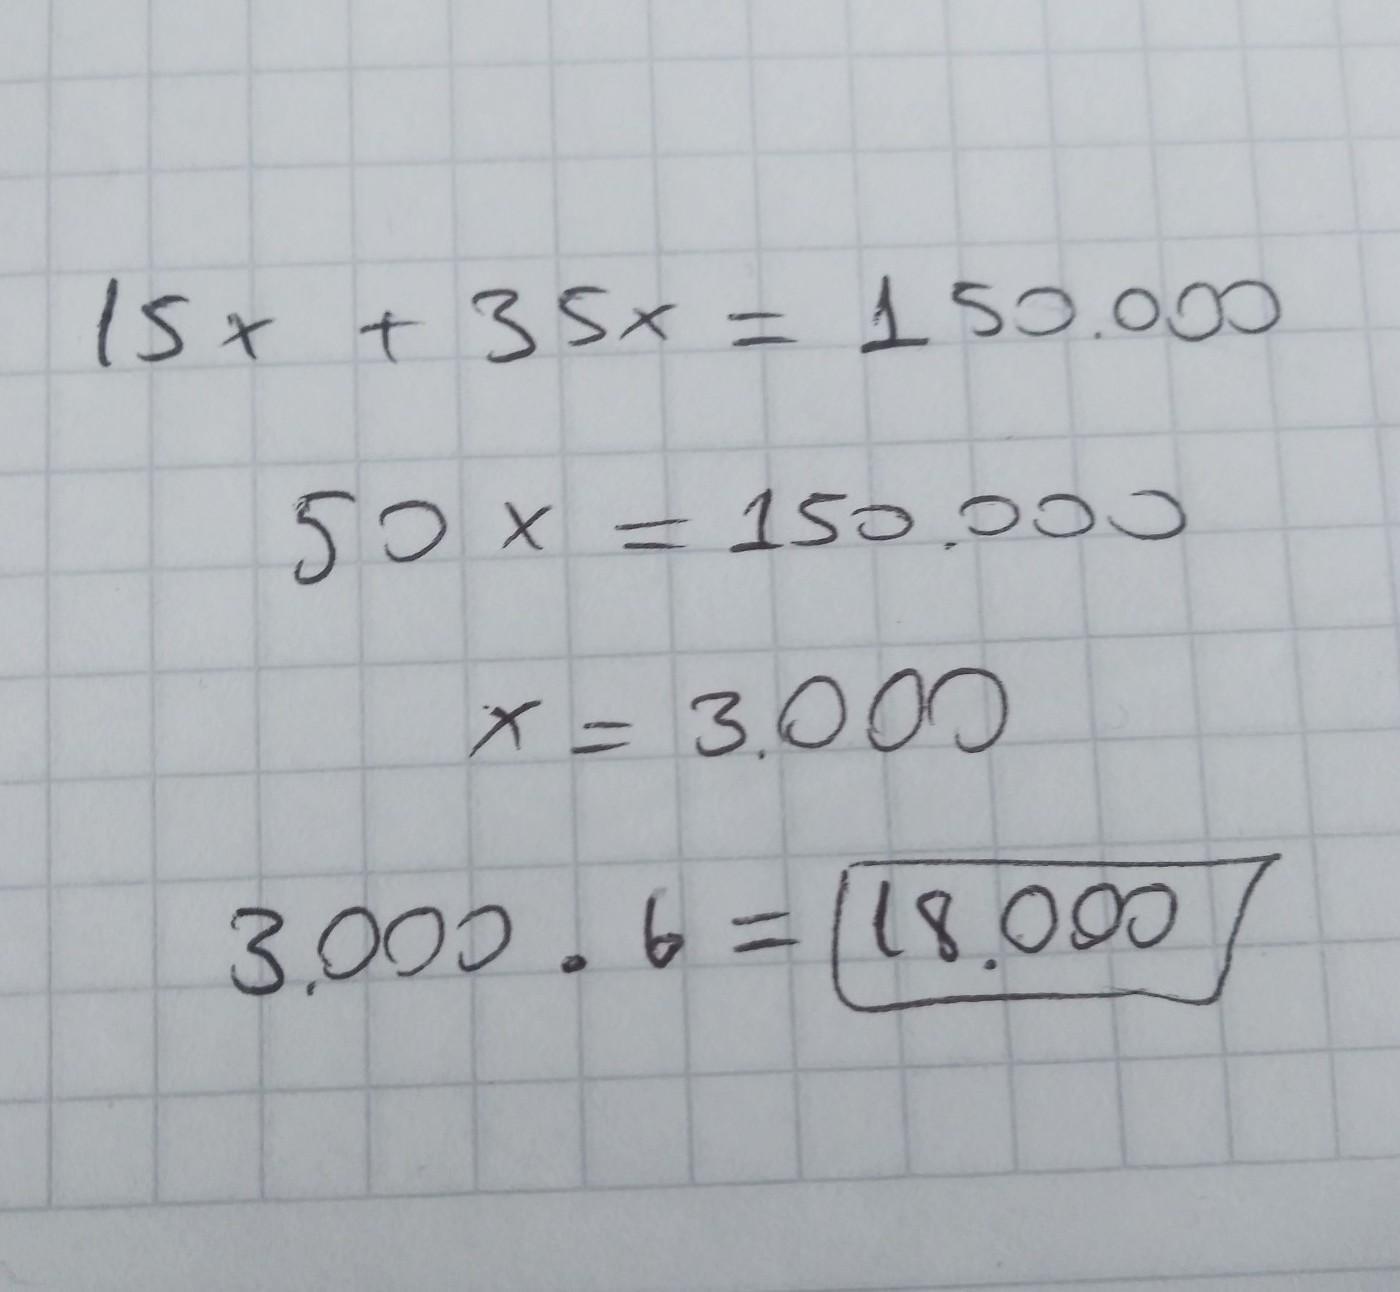 15x + 35x = 150.000
50x = 150.000
x = 3.000
3.000 . 6 = 18.000